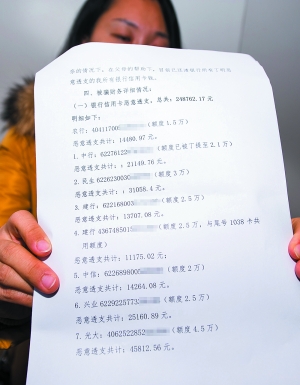 意透支的我所有银行信用卡账。
四、被骗的各详细情况:
(一)银行信用卡恶意透支,总共:248762.17 元
明细如下:
农行:40411700 (额度 1.5 万)
恶意透支共计:14480.97 元。
1.中行:62276122 (额度已被了提至 2.1 万)
恶意透支共计:,21149.76 元。
2.民业 622623003 (额度 3 万)
恶意透支共计:,31058.4 元。
3.建行:622168003 (额度 2.5 万)
恶意透支共计:13707.08 元。
4.建行 436748501 (额度 2.5 万,与尾号 1038 卡共
用额度)
恶意透支共计:11175.02 元;
5.中信:622689800 (额度 2 万)
恶意透支共计:14264.08 元。
6.兴业 6229225773 (额度 2.5 万)
恶意透支共计:25160.89 元。
7.光大:4062522852 (额度 4.5 万)
恶意透支共计:45812.56 元。